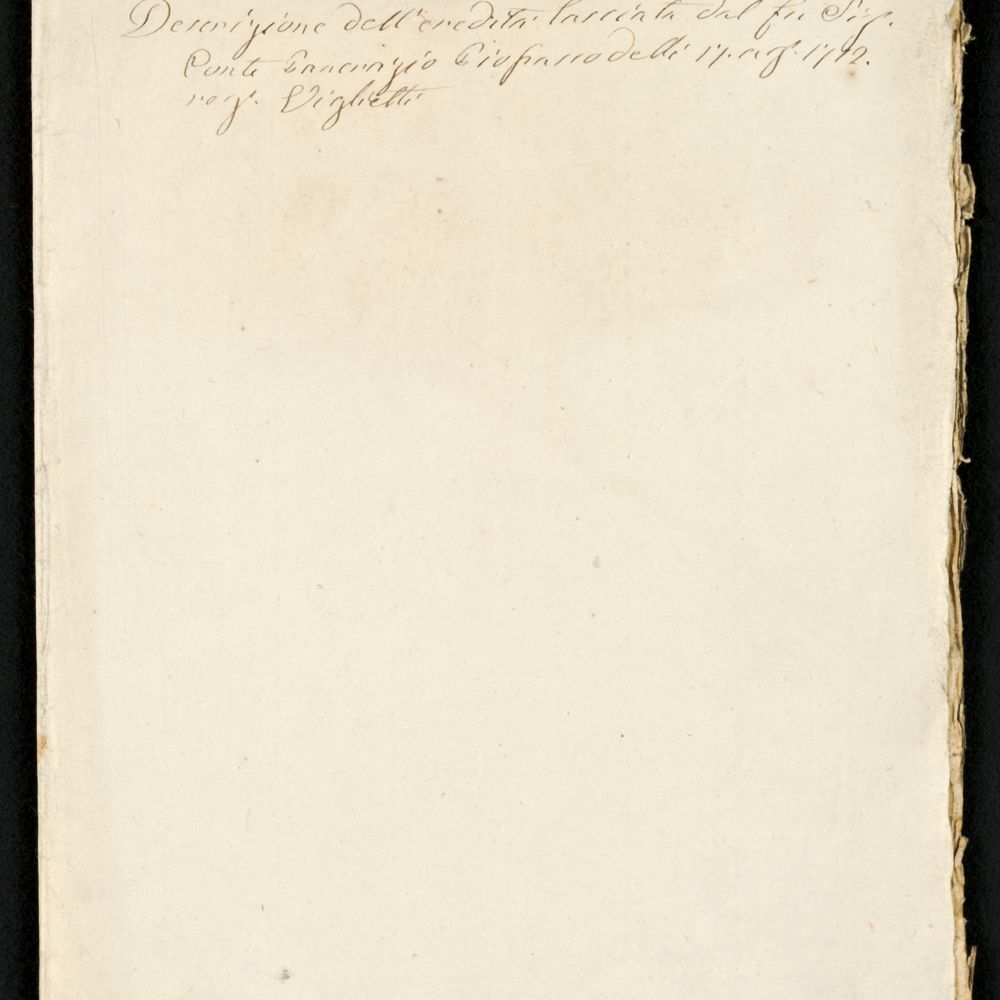 Descrizione dell'eredità lasciata dal fu Sig.
Conte Pancrazio Giofanno delli 17. ag.° 1792.
rog.° Viglietti